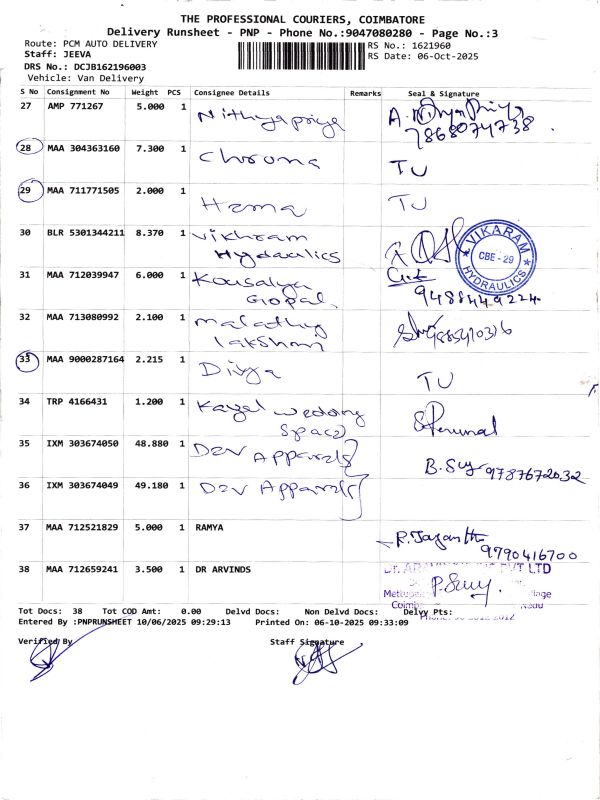 THE PROFESSIONAL COURIERS, COIMBATORE
Delivery Runsheet - PNP - Phone No.:9047080280 - Page No.:3
Route: PCM AUTO DELIVERY RS No.: 1621960
Staff: JEEVA RS Date: 06-Oct-2025
DRS No.: DCJB162196003
Vehicle: Van Delivery
S No Consignment No Weight PCS Consignee Details Remarks Seal & Signature
27 AMP 771267 5.000 1 Nithyapriya
7868074738
28 MAA 304363160 7.300 1 TU
29 MAA 711771505 2.000 1 Hema TU
30 BLR 5301344211 8.370 1 Vikhram
Hydaulics
VIKARAM HYDRAULICS CBE - 29
31 MAA 712039947 6.000 1 Kousalya
Gopal 9488449224
32 MAA 713080992 2.100 1 malathy
lakshmi
33 MAA 9000287164 2.215 1 Divya TU
34 TRP 4166431 1.200 1 Kayal wedding
Space S Perumal
35 IXM 303674050 48.880 1 Dev Apparels
B. 9787672032
36 IXM 303674049 49.180 1 Dev Apparels
37 MAA 712521829 5.000 1 RAMYA
9790416700
38 MAA 712659241 3.500 1 DR ARVINDS
PVT LTD
Tot Docs: 38 Tot COD Amt: 0.00 Delvd Docs: Non Delvd Docs: Delvy Pts:
Entered By :PNPRUNSHEET 10/06/2025 09:29:13 Printed On: 06-10-2025 09:33:09
Verified By Staff Signature